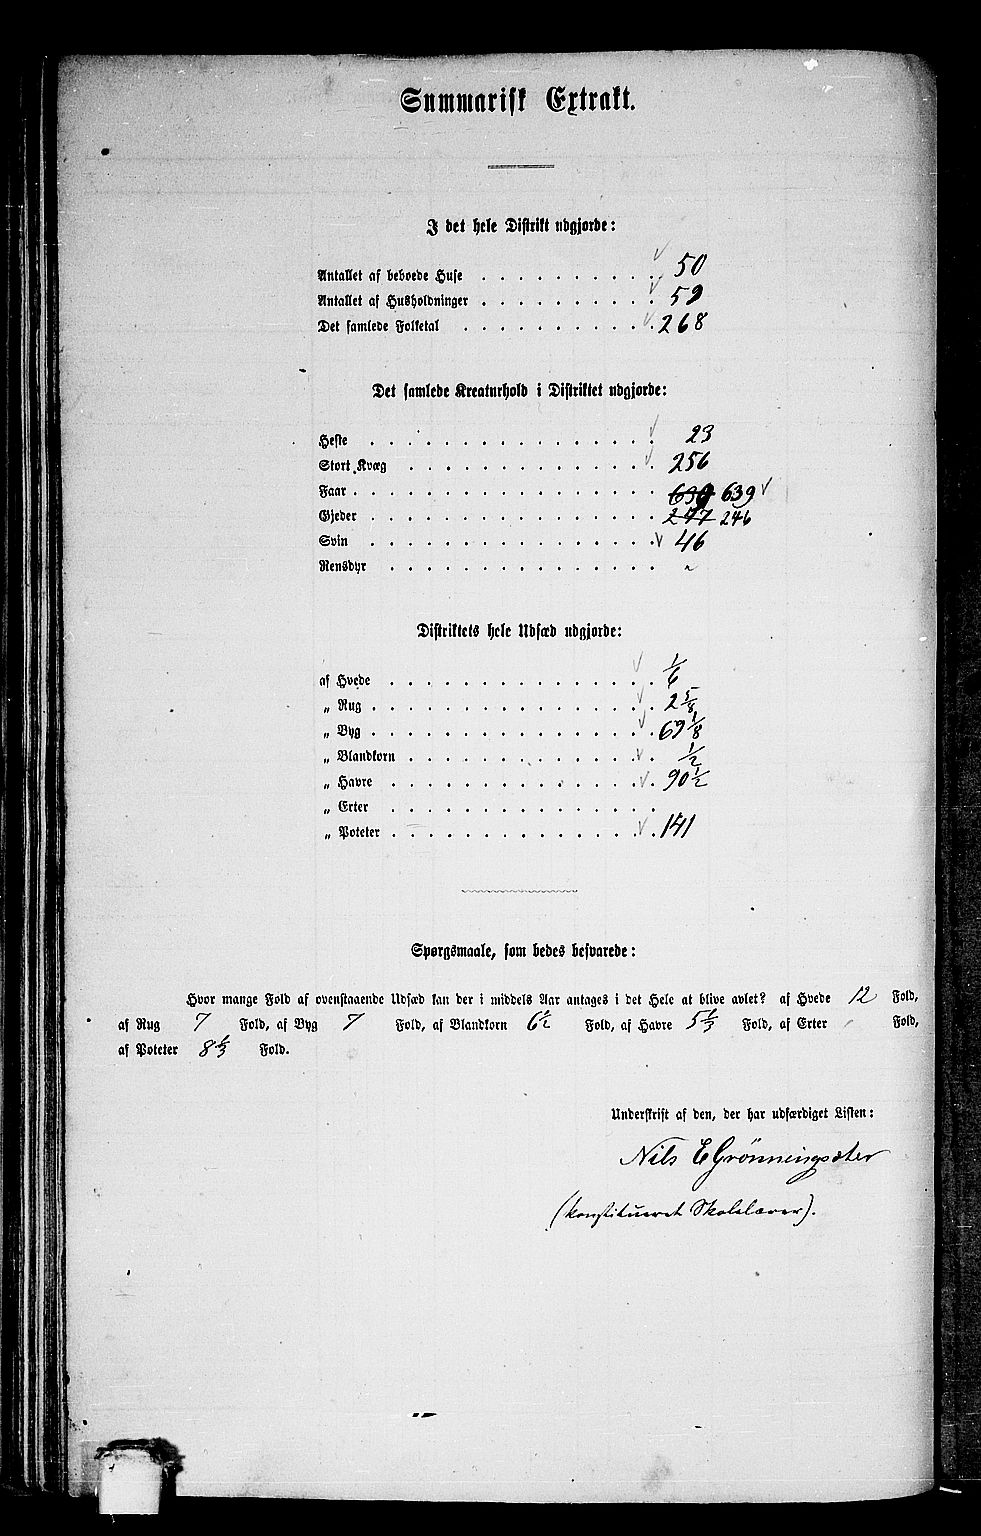 Summarisk Extrakt.
I det hele Distrikt udgjorde:
Antallet af beboede Huse . . . . . . . . . 50
Antallet af Husholdninger . . . . . . . . . 59
Det samlede Folketal . . . . . . . . . . 268
Det samlede Kreaturhold i Distriktet udgjorde:
Heste . . . . . . . . . . . . . . 23
Stort Kvæg . . . . . . . . . . . . 256
Faar . . . . . . . . . . . . . . . 639
Gjeder . . . . . . . . . . . . . . 247 246
Svin . . . . . . . . . . . . . . 46
Rensdyr . . . . . . . . . . . . . "
Distriktets hele Udsæd udgjorde:
af Hvede . . . . . . . . . . . . . 1/6
„ Rug . . . . . . . . . . . . . . 2 5/8
„ Byg . . . . . . . . . . . . . . 69 1/8
„ Blandkorn . . . . . . . . . . . . 1/2
„ Havre . . . . . . . . . . . . . 90 1/2
„ Erter . . . . . . . . . . . . .
„ Poteter . . . . . . . . . . . . . 141
Spørgsmaale, som bedes besvarede:
Hvor mange Fold af ovenstaaende Udsæd kan der i middels Aar antages i det Hele at blive avlet? af Hvede 12 Fold,
af Rug 7 Fold, af Byg 7 Fold, af Blandkorn 6 1/2 Fold, af Havre 5 1/3 Fold, af Erter Fold,
af Poteter 8 1/3 Fold.
Underskrift af den, der har udfærdiget Listen:
Nils E Grönningsæter
(konstitueret Skolelærer).